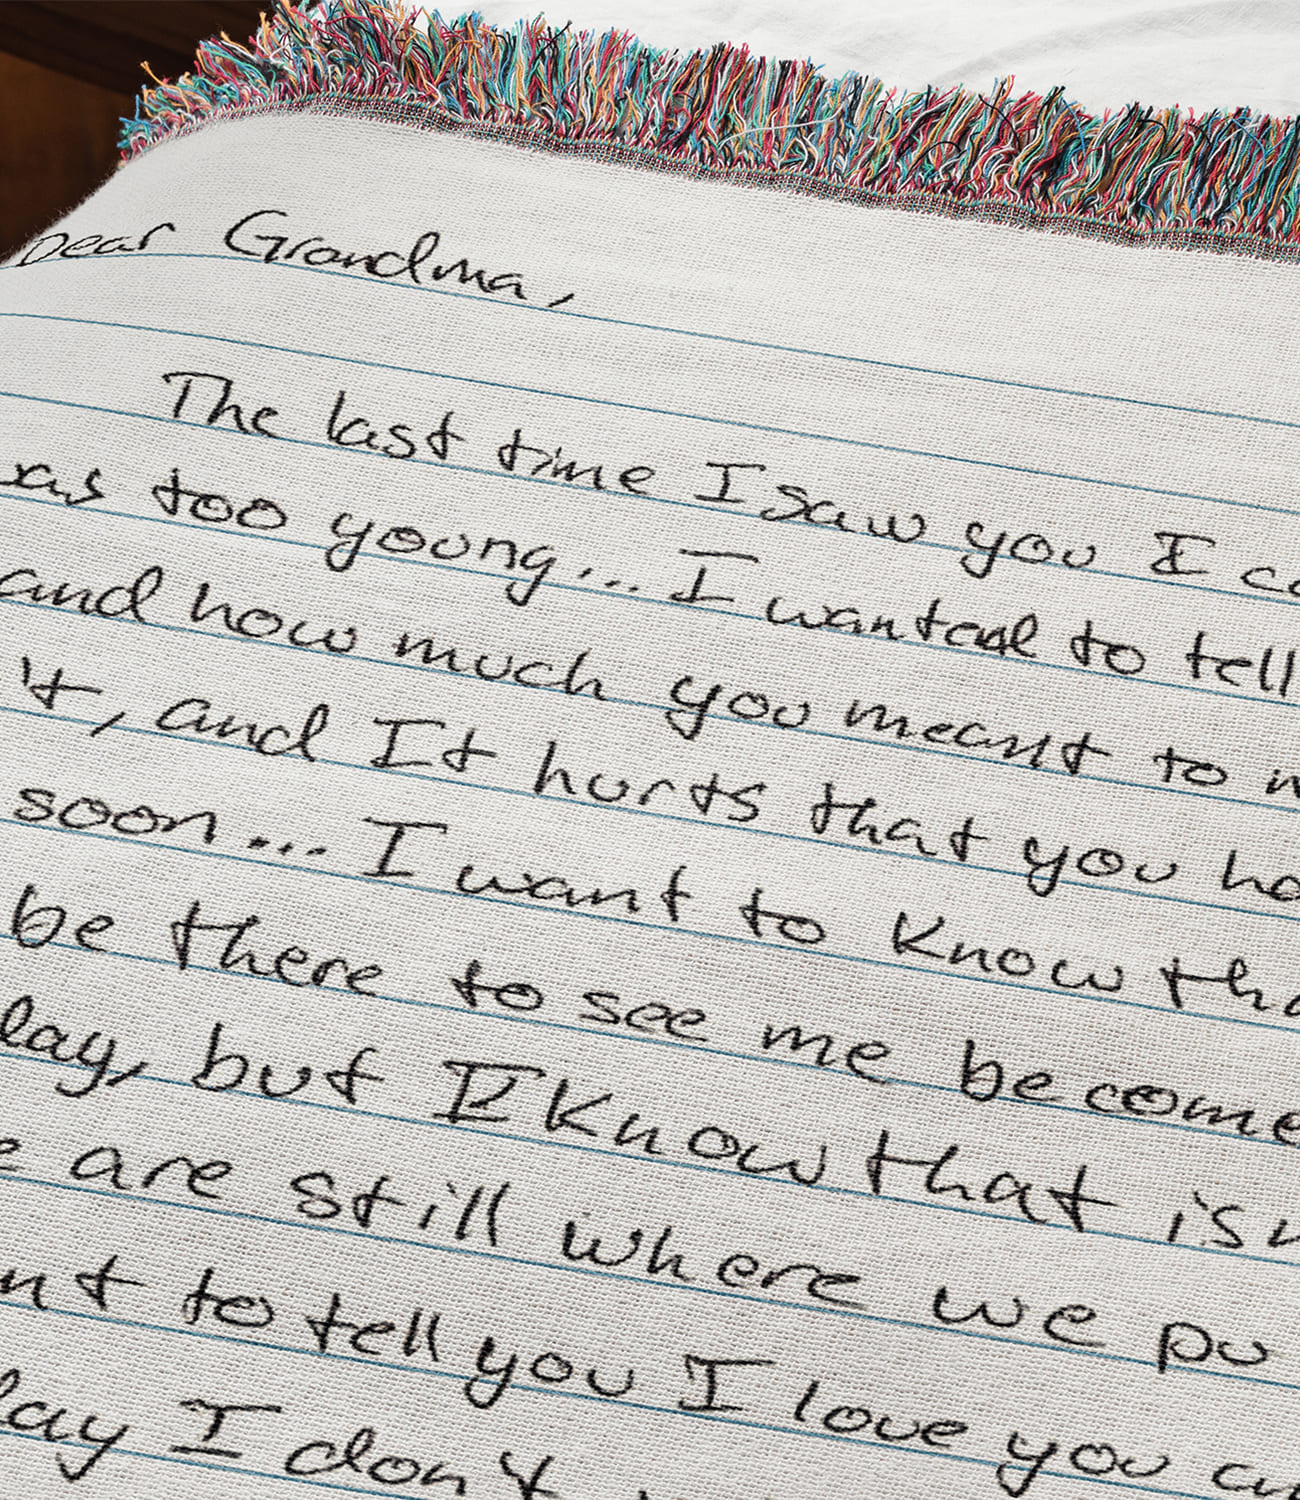 Dear Grandma,
The last time I saw you I
too young... I wanted to tell
and how much you meant to
't, and It hurts that you
soon... I want to know
be there to see me become
lay, but I know that
are still where we
to tell you I love you
lay I don't